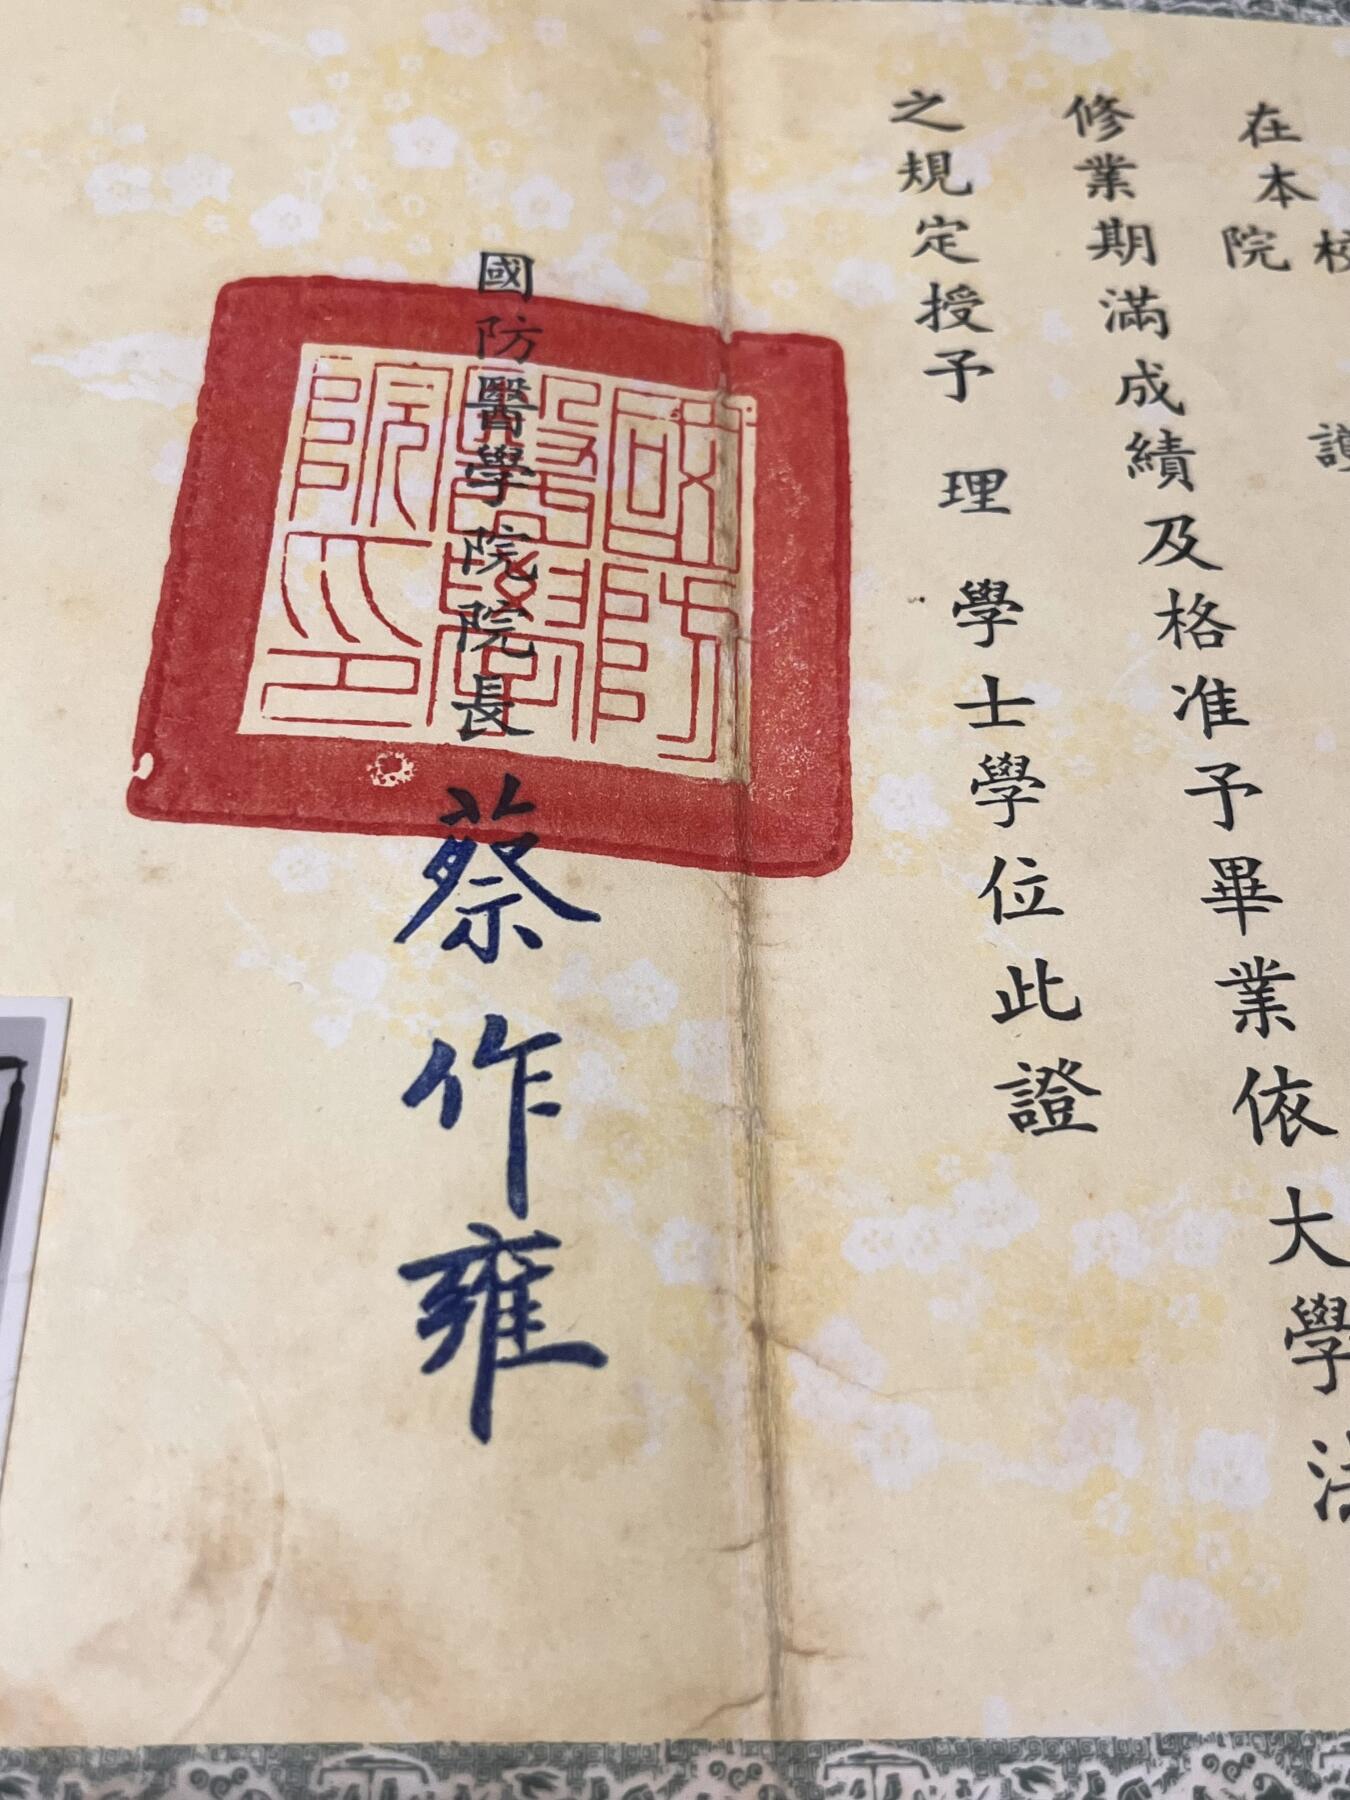 在本院
修業期滿成績及格准予畢業依大學
之規定授予理學士學位此證
國防醫學院院長蔡作雍
國防醫學院之印